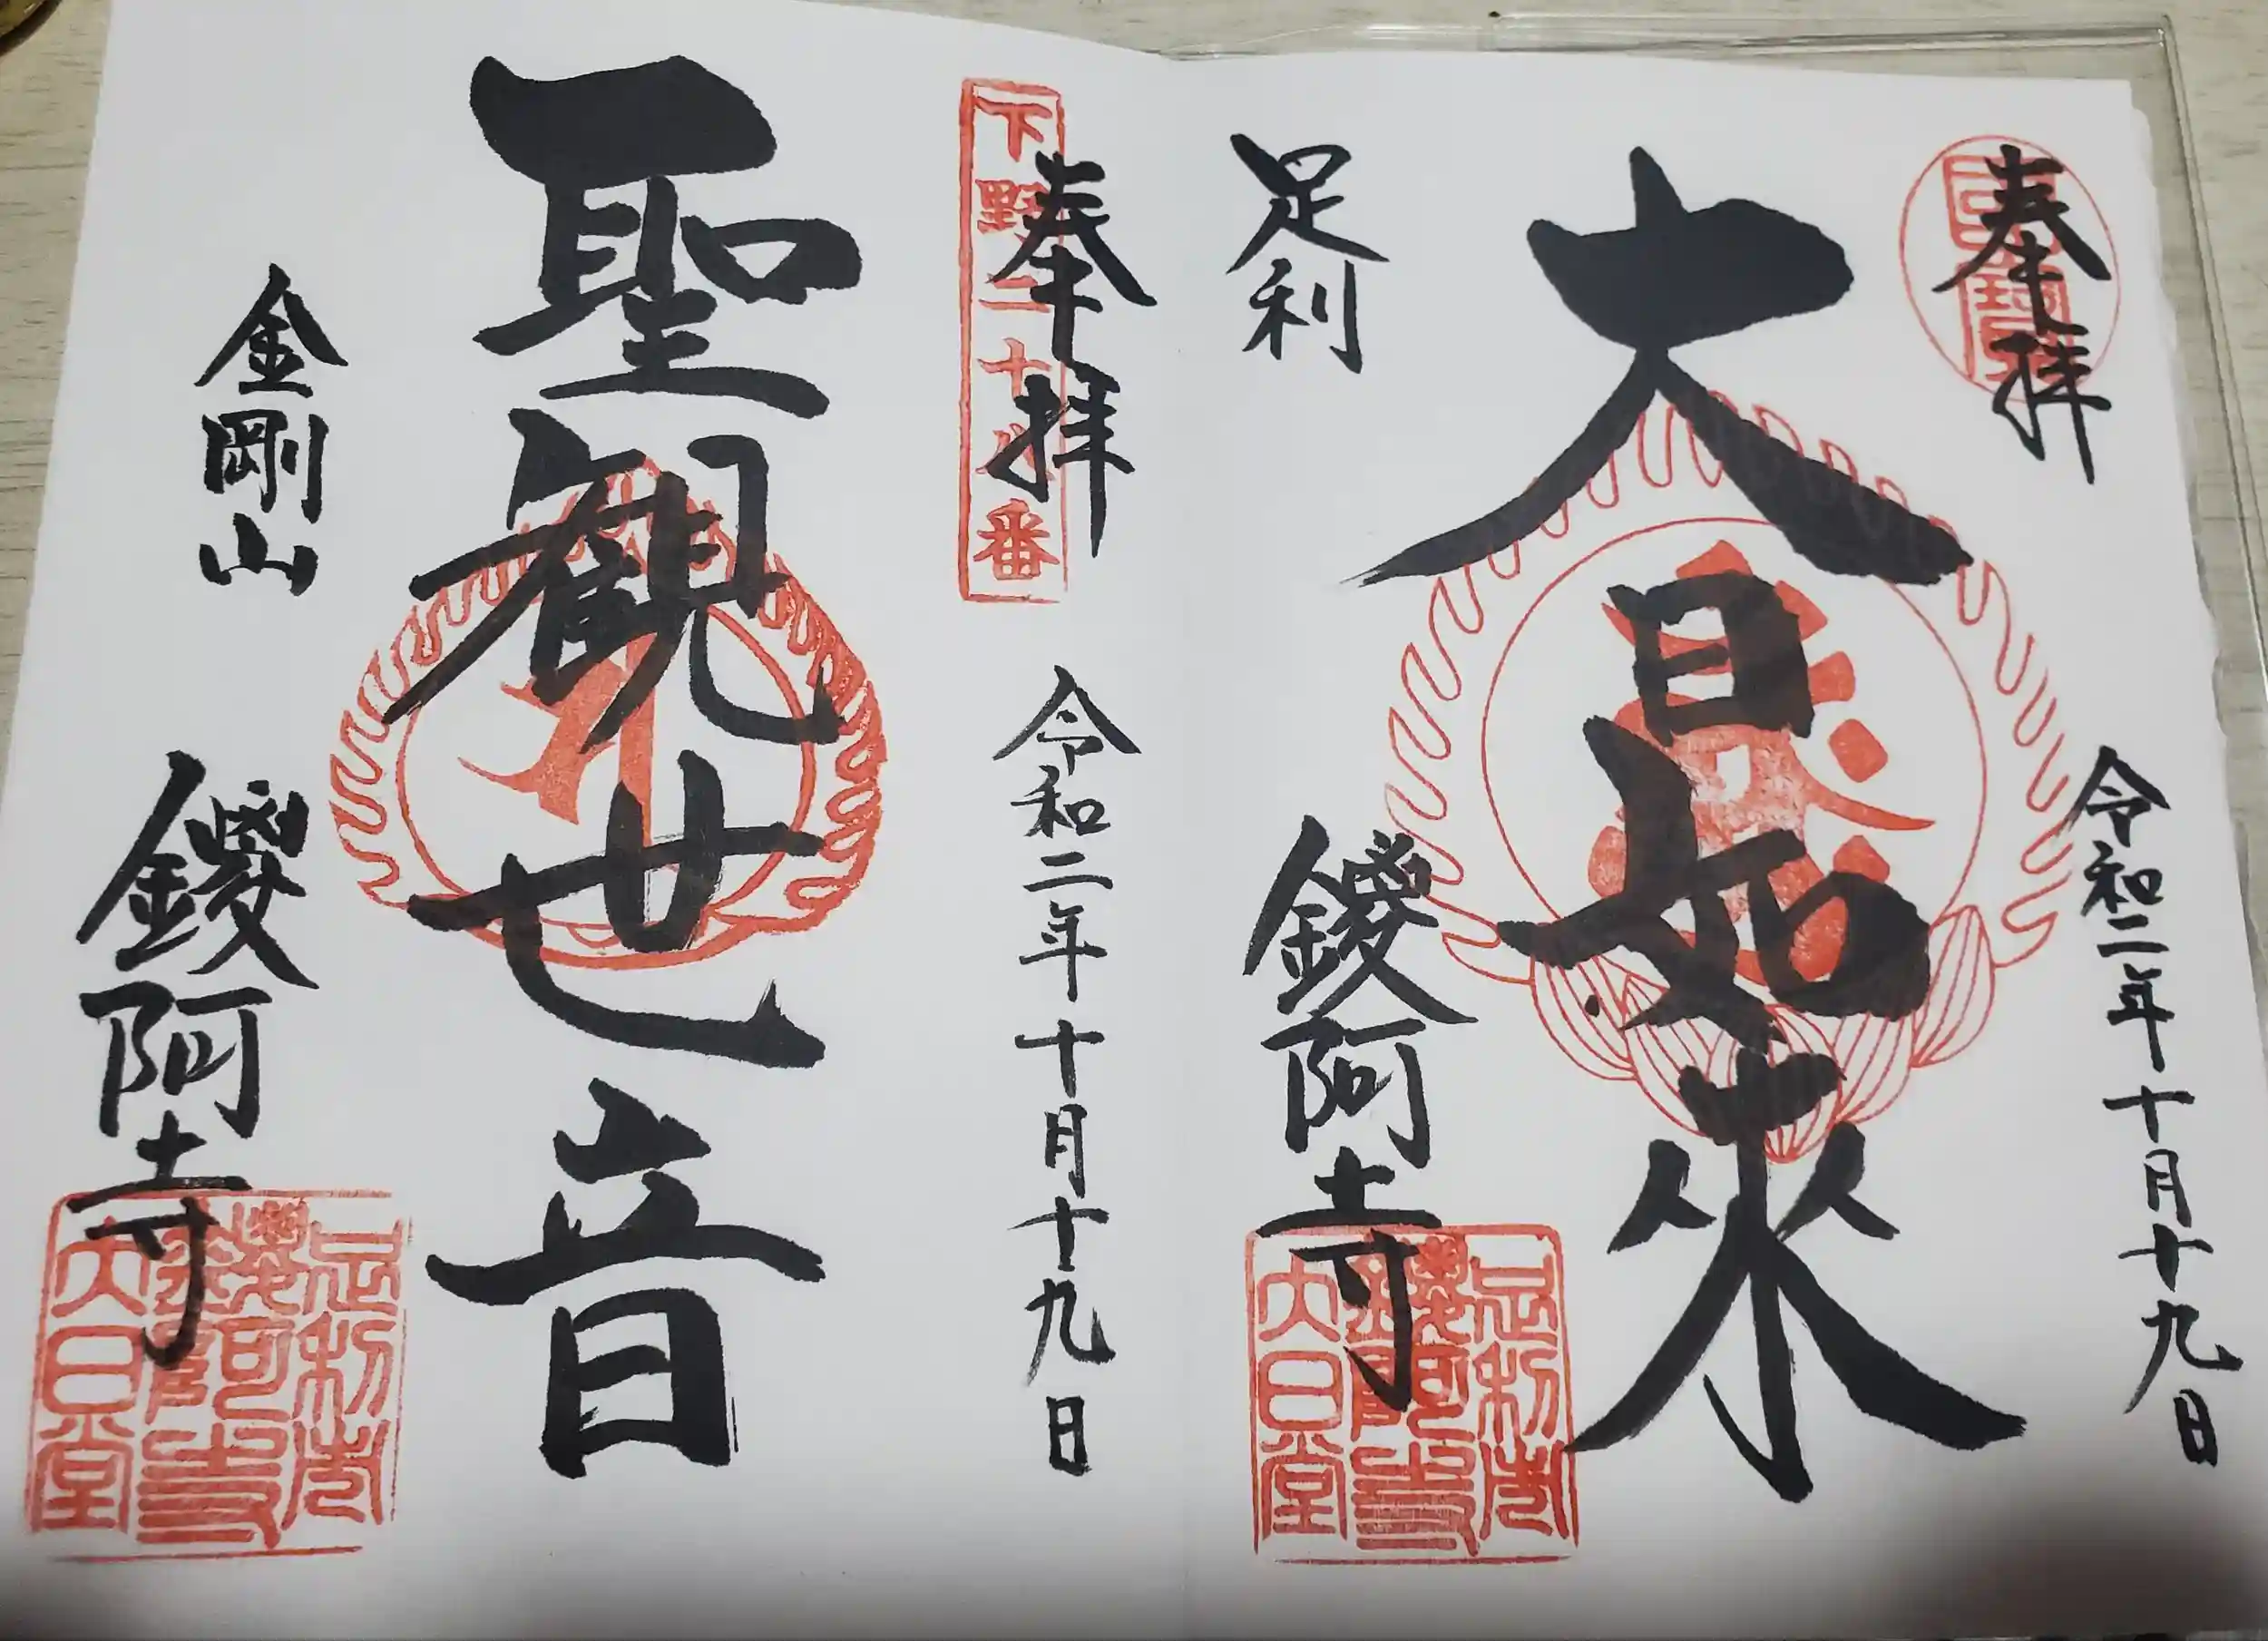 奉拝
國寳
令和二年十月十九日
大日如来
足利
鑁阿寺
足利市
鑁阿寺
大日堂
奉拝
下野二十八番
令和二年十月十九日
聖観世音
金剛山
鑁阿寺
足利市
鑁阿寺
大日堂